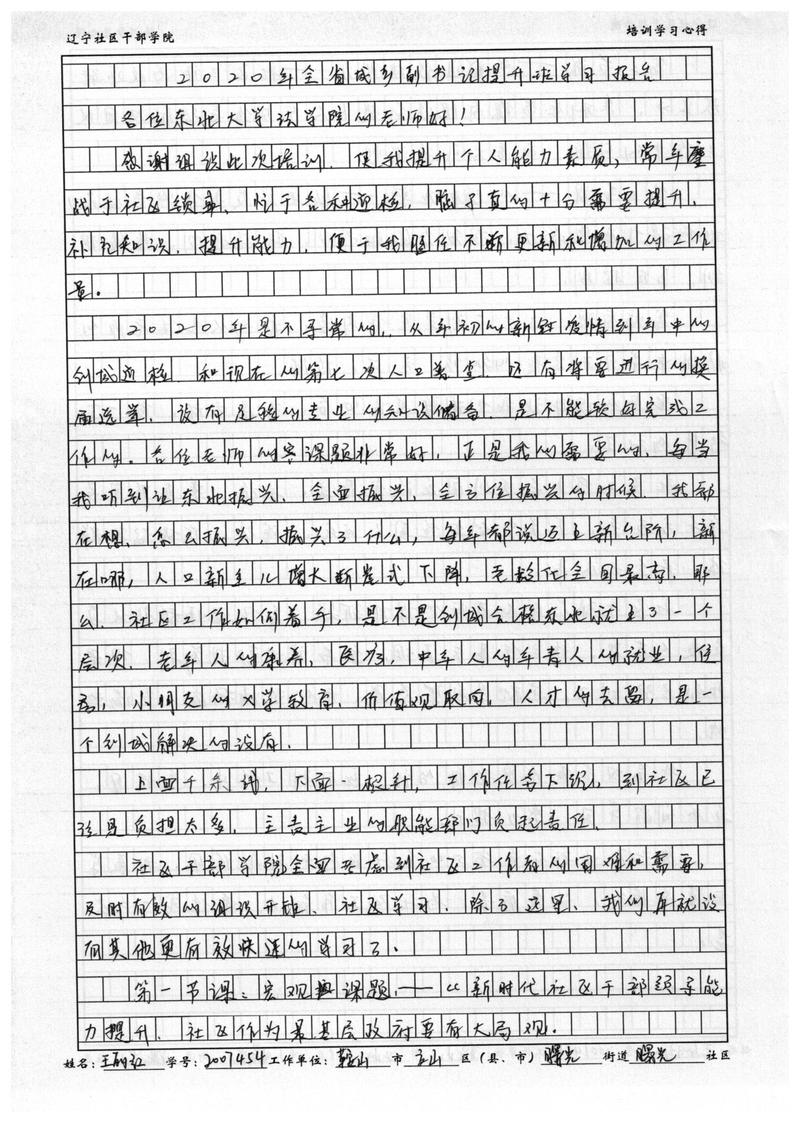 辽宁社区干部学院 培训学习心得
2020年全省城乡副书记提升班学习报告
各位东北大学法学院的老师好！
感谢组织此次培训，使我提升个人能力素质，常年鏖
战于社区琐事，忙于各种迎检，脑子真的十分需要提升，
补充知识，提升能力，便于我胜任不断更新和增加的工作
量。
2020年是不寻常的，从年初的新冠疫情到年中的
创城迎检，和现在的第七次人口普查，还有将要进行的换
届选举，没有足够的专业的知识储备，是不能较好完成工
作的。各位老师的客课题非常好，正是我们需要的，每当
我听到让东北振兴、全面振兴，全方位振兴的时候，我都
在想，怎么振兴，振兴了什么，每年都说迈上新台阶，新
在哪，人口新生儿增大断崖式下降，老龄化全国最高，那
么，社区工作如何着手，是不是创城合格东北就上了一个
层次，老年人的康养，医疗，中年人的年青人的就业，住
房，小朋友的入学教育，价值观取向，人才的去留，是一
个创城解决的没有。
上面千条线，下面一根针，工作任务下级，到社区已
经是负担太多，主责主业的职能部门负起责任。
社区干部学院全面考虑到社区工作者的困难和需要，
及时有效的组织开班、社区学习，除了这里，我们再就没
有其他更有效快速的学习了。
第一节课：宏观课题，——《新时代社区干部领导能
力提升，社区作为最基层政府要有大局观。
姓名： 学号：2007454 工作单位：鞍山 市 立山 区（县、市） 曙光 街道 曙光 社区